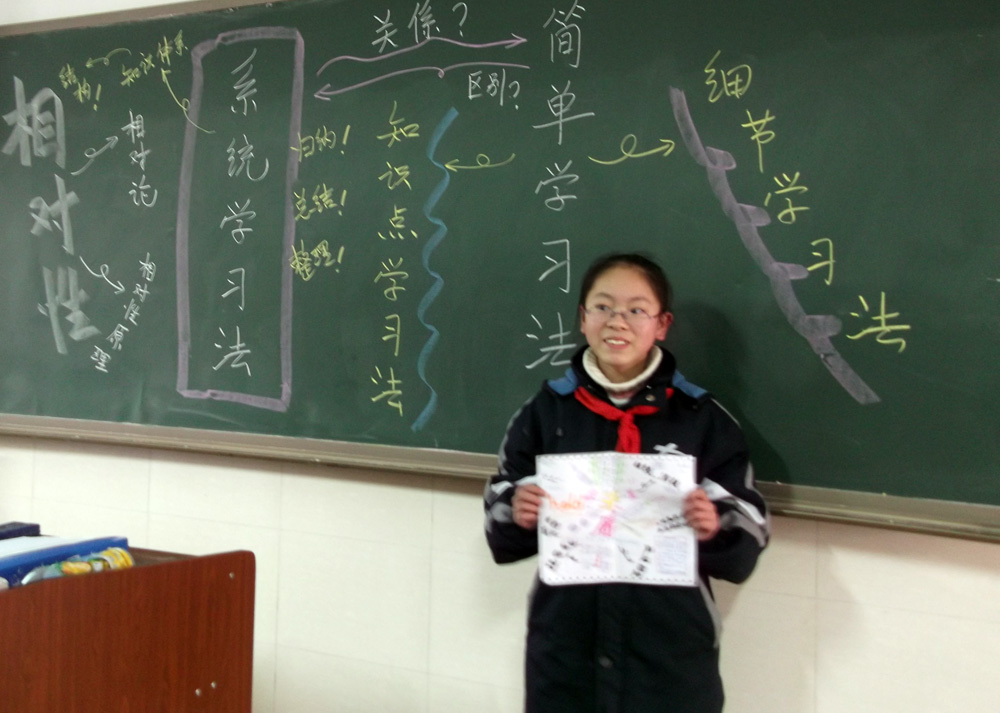 相对性
结构！
知识体系
相对论
相对性原理
系统学习法
关係？
区别？
归纳！
总结！
整理！
知识点学习法
简单学习法
细节学习法